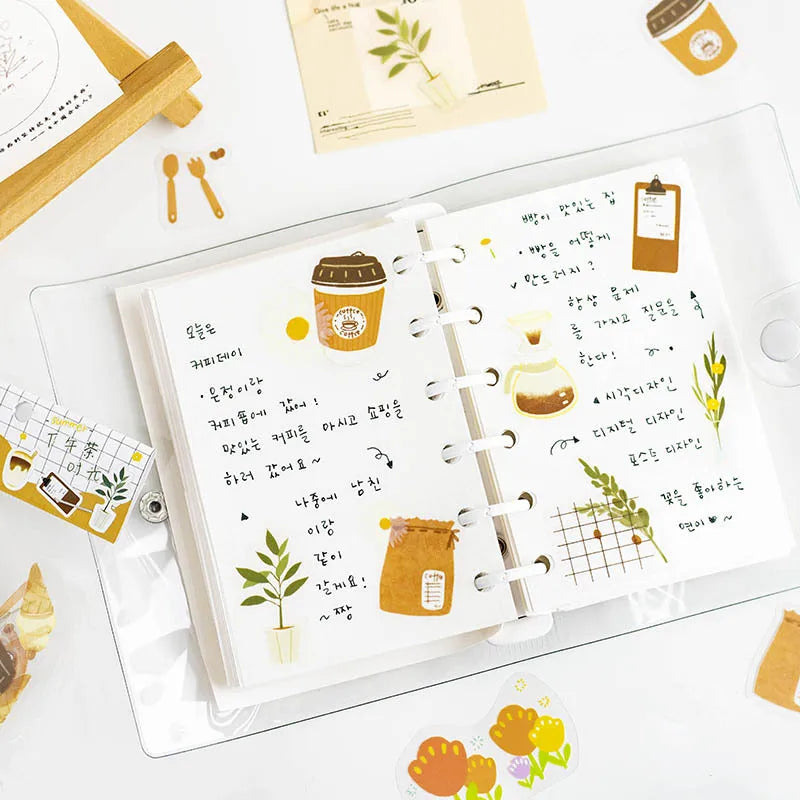 Give life a hug
오늘은
커피데이
• 은정이랑
커피숍에 갔어!
맛있는 커피를 마시고 쇼핑을
하러 갔어요~
나중에 남친
이랑
같이
갈게요!
~짱
COFFEE
COFFEE
Coffee
빵이 맛있는 집
• 빵을 어떻게
만드러지?
항상 문제
를 가지고 질문을
한다!
시각디자인
디지털 디자인
포스트 디자인
꽃을 좋아하는
연이♥~
summer
下午茶
时光